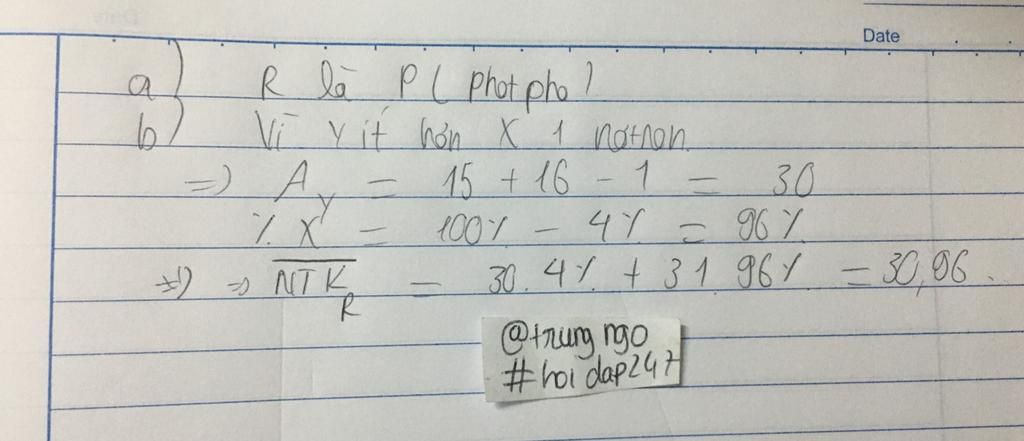 Date
a) R là P ( photpho)
b) Vì Y ít hơn X 1 nơtron
=) A_Y = 15 + 16 - 1 = 30
% X = 100% - 4% = 96%
=) => NTK_R = 30. 4% + 31 96% = 30,96.
@trung ngo
#hoi dap247